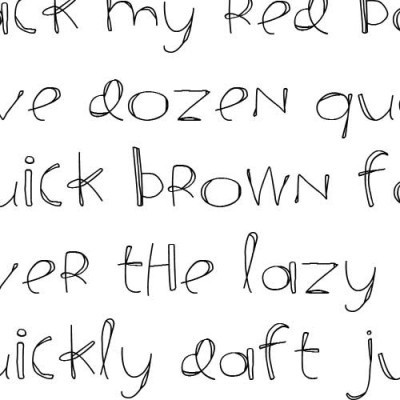 ack my Red b
ve dozen qu
uick brown fo
ver the lazy
uickly daft ju